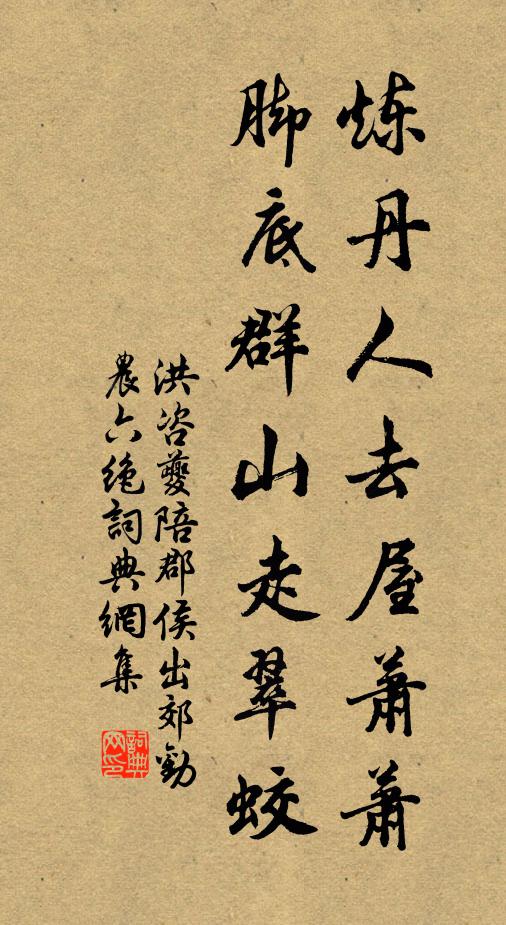 炼丹人去屋蕭蕭
脚底群山走翠蛟
洪咨夔陪郡侯出郊勸
農六绝詞典網集
詞典
网印